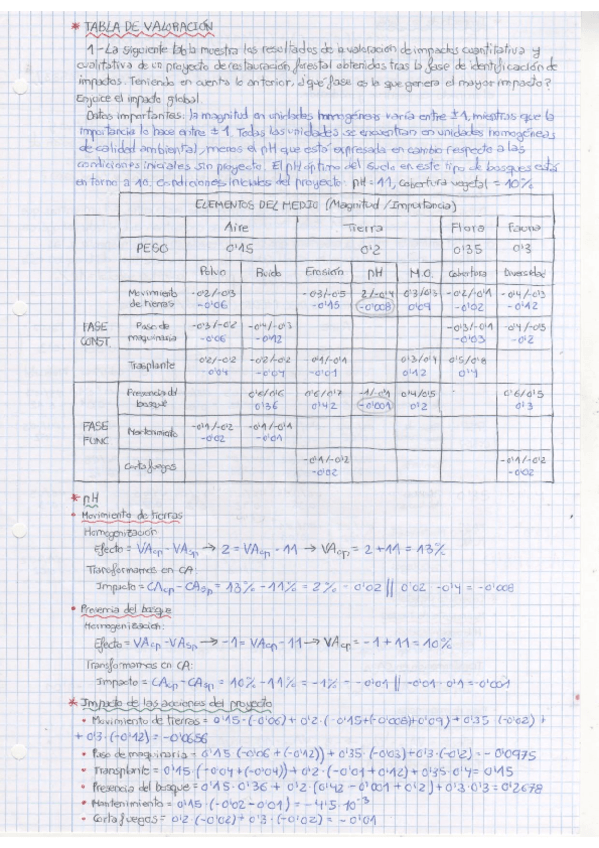 * TABLA DE VALORACIÓN
1.- La siguiente tabla muestra los resultados de la valoración de impactos cuantitativa y
cualitativa de un proyecto de restauración forestal obtenidos tras la fase de identificación de
impactos. Teniendo en cuenta lo anterior, ¿qué fase es la que genera el mayor impacto?
Enjuicie el impacto global.
Datos importantes: la magnitud en unidades homogéneas varía entre ±1, mientras que la
importancia lo hace entre ±1. Todas las unidades se encuentran en unidades homogéneas
de calidad ambiental, menos el pH que está expresada en cambio respecto a las
condiciones iniciales sin proyecto. El pH óptimo del suelo en este tipo de bosques está
en torno a 10. Condiciones iniciales del proyecto: pH = 11, cobertura vegetal = 10%
ELEMENTOS DEL MEDIO (Magnitud/Importancia)
Aire Tierra Flora Fauna
PESO 0'15 0'2 0'35 0'3
Polvo Ruido Erosión pH M.O. Cobertura Diversidad
FASE CONST.
Movimiento de tierras -0'2/-0'3 -0'3/-0'5 2/-0'4 0'3/0'3 -0'2/-0'1 -0'4/-0'3
-0'06 -0'15 -0'008 0'09 -0'02 -0'12
Paso de maquinaria -0'3/-0'2 -0'4/-0'3 -0'3/-0'1 0'4/-0'5
-0'06 -0'12 -0'03 -0'2
Trasplante 0'2/-0'2 -0'2/-0'2 -0'1/-0'1 0'3/0'4 0'5/0'8
-0'04 -0'04 -0'01 0'12 0'4
FASE FUNC
Presencia del bosque 0'6/0'6 0'6/0'7 -1/-0'1 0'4/0'5 0'6/0'5
0'36 0'42 -0'001 0'2 0'3
Mantenimiento -0'1/-0'2 -0'1/-0'1
-0'02 -0'01
Cortafuegos -0'1/-0'2 -0'1/-0'2
-0'02 -0'02
* pH
• Movimiento de tierras
Homogenización
Efecto = VAcp - VAsp → 2 = VAcp - 11 → VAcp = 2 + 11 = 13%
Transformamos en CA:
Impacto = CAcp - CAsp = 13% - 11% = 2% = 0'02 || 0'02 · -0'4 = -0'008
• Presencia del bosque
Homogenización:
Efecto = VAcp - VAsp → -1 = VAcp - 11 → VAcp = -1 + 11 = 10%
Transformamos en CA:
Impacto = CAcp - CAsp = 10% - 11% = -1% = -0'01 || -0'01 · 0'1 = -0'001
* Impacto de las acciones del proyecto
• Movimiento de tierras = 0'15 · (-0'06) + 0'2 · (-0'15 + (-0'008) + 0'09) + 0'35 · (-0'02) +
+ 0'3 · (-0'12) = -0'0656
• Paso de maquinaria = 0'15 · (-0'06 + (-0'12)) + 0'35 · (-0'03) + 0'3 · (-0'2) = -0'0975
• Transplante = 0'15 · (-0'04 + (-0'04)) + 0'2 · (-0'01 + 0'12) + 0'35 · 0'4 = 0'15
• Presencia del bosque = 0'15 · 0'36 + 0'2 · (0'42 - 0'001 + 0'2) + 0'3 · 0'3 = 0'2678
• Mantenimiento = 0'15 · (-0'02 - 0'01) = -4'5 · 10⁻³
• Cortafuegos = 0'2 · (-0'02) + 0'3 · (-0'02) = -0'01